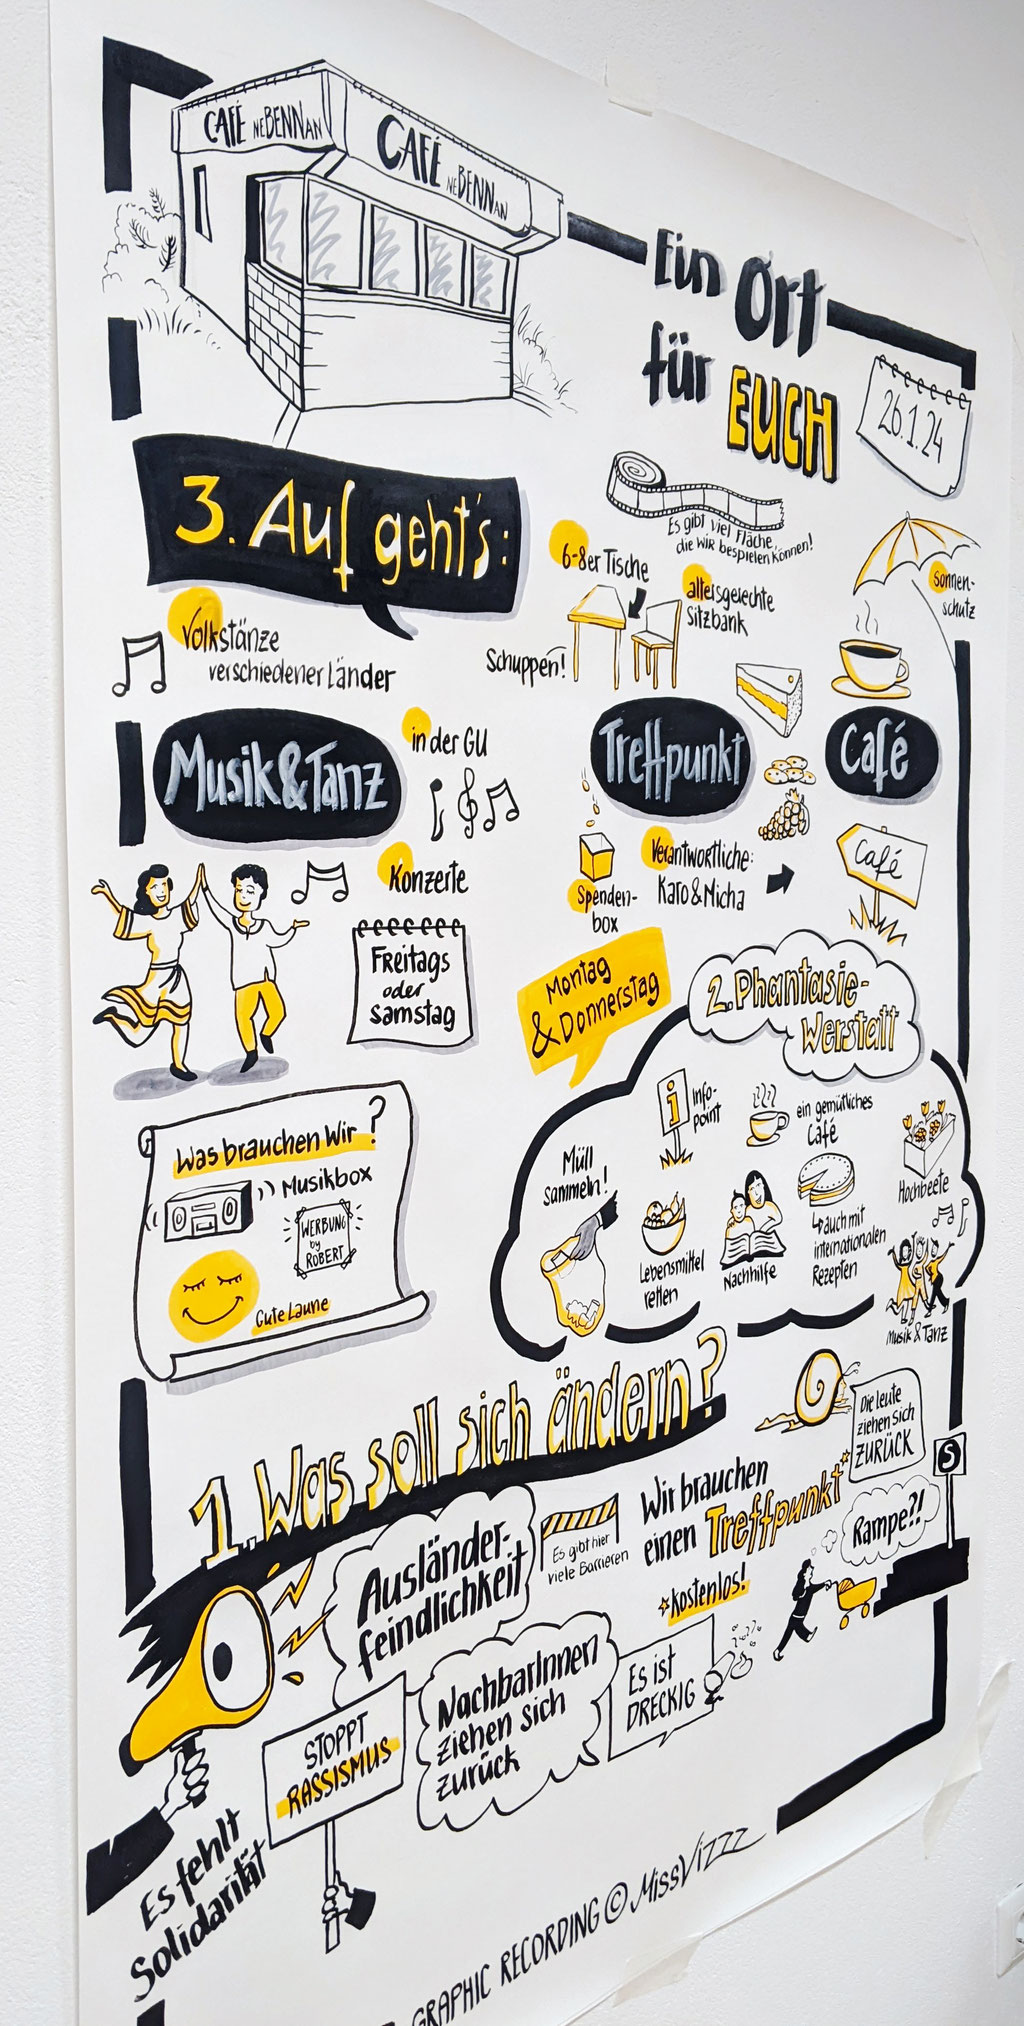 CAFÉ NEBENNAN
CAFÉ NEBENNAN
Ein Ort
für EUCH
26.1.24
3. Auf geht's:
Volkstänze
verschiedener Länder
Musik & Tanz
in der GU
Konzerte
Freitags
oder
Samstag
Es gibt viel Fläche,
die wir bespielen können!
6-8er Tische
altersgerechte
Sitzbank
Schuppen!
Sonnen-
schutz
Treffpunkt
Café
Spenden-
box
Verantwortliche:
Karo & Micha
Café
Montag
& Donnerstag
2. Phantasie-
Werstatt
Info-
point
ein gemütliches
Café
Müll
sammeln!
Lebensmittel
retten
Nachhilfe
auch mit
internationalen
Rezepten
Hochbeete
Musik & Tanz
Was brauchen Wir?
Musikbox
WERBUNG
by
ROBERT
Gute Laune
1. Was soll sich ändern?
Ausländer-
feindlichkeit
Es gibt hier
viele Barrieren
Wir brauchen
einen Treffpunkt*
*kostenlos!
Die Leute
ziehen sich
ZURÜCK
S
Rampe?!
NachbarInnen
ziehen sich
zurück
Es ist
DRECKIG
STOPPT
RASSISMUS
Es fehlt
Solidarität
GRAPHIC RECORDING © MissVizzz